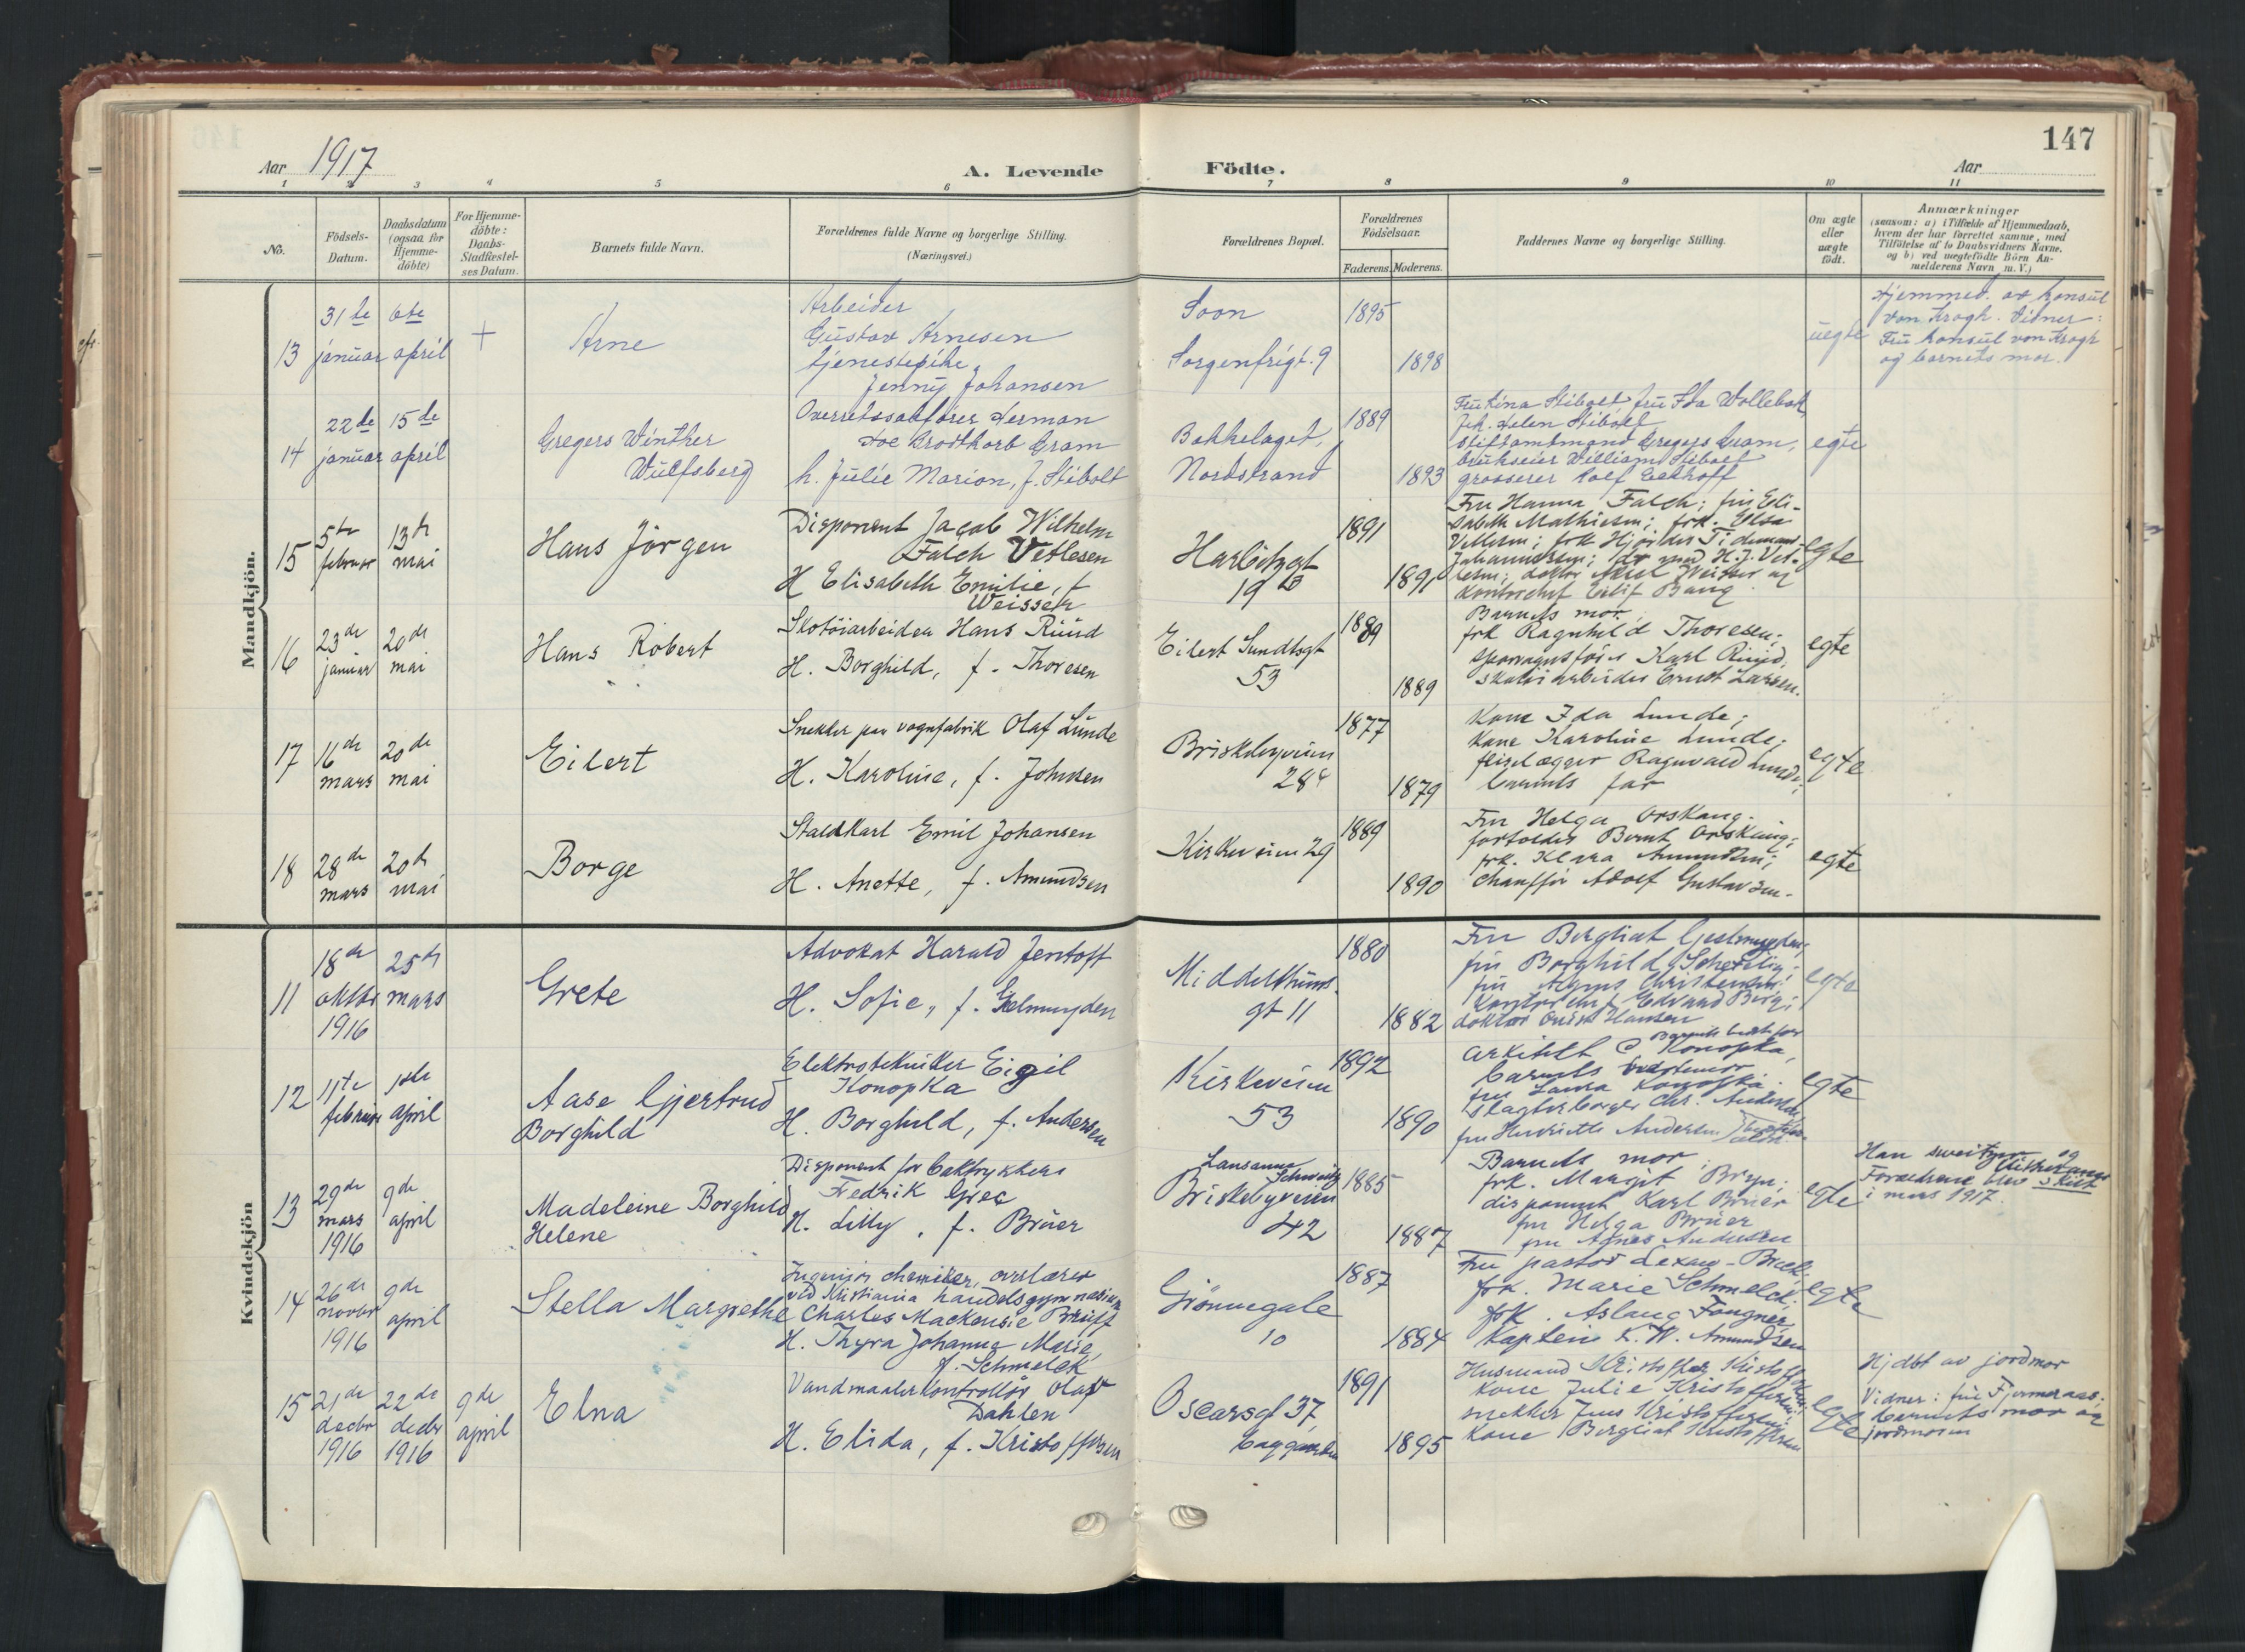 147
Aar 1917
A. Levende Födte.
Aar
1 2 3 4 5 6 7 8 9 10 11
No.
Födsels-Datum.
Daabsdatum (ogsaa for Hjemme-döbte)
For Hjemme-döbte: Daabs-Stadfæstel-ses Datum.
Barnets fulde Navn.
Forældrenes fulde Navne og borgerlige Stilling.
(Næringsvei.)
Forældrenes Bopæl.
Forældrenes Födselsaar.
Faderens. Moderens.
Faddernes Navne og borgerlige Stilling.
Om ægte eller uægte födt.
Anmærkninger
(saasom: a) i Tilfælde af Hjemmedaab,
hvem der har forrettet samme, med
Tilföielse af to Daabsvidners Navne,
og b) ved uægtefödte Börn An-
melderens Navn m. V.)
Mandkjön.
13
31te januar
6te april
+
Arne
Arbeider
Gustav Arnesen
tjenestepike
Jenny Johansen
Soon
Sorgenfrigt. 9
1895
1898
uegte
Hjemmed. av konsul
von Krogh. Vidner:
Fru konsul von Krogh
og barnets mor.
14
22de januar
15de april
Gregers Winther
Wulfsberg
Overretssakfører Herman
Boe Brodtkorb Gram
h. Julie Marion, f. Stibolt
Bekkelaget,
Nordstrand
1889
1893
Fru Lina Stibolt, fru Ida Wollebæk
frk. Helen Stibolt
stiftamtmand Gregers Gram,
brukseier William Stibolt
grosserer Rolf Eeckhoff
egte
15
5te februar
13de mai
Hans Jörgen
Disponent Jacob Wilhelm
Falch Vetlesen
H Elisabeth Emilie, f
Weisser
Harbitzgt
19 b
1891
1891
Fru Hanna Falch; fru Eli-
sabeth Mathiesen; frk. Elsa
Vetlesen; frk Hjördis Tidemand
Johannessen; dr med H.J. Vet-
lesen; doktor Weisser og
kontorchef Eilif Bang
egte
16
23de januar
20de mai
Hans Robert
Skotöiarbeider Hans Ruud
H. Borghild, f. Thoresen
Eilert Sundtsgt
53
1889
1889
Barnets mor;
frk Ragnhild Thoresen;
sporvognsförer Karl Ruud;
skotöiarbeider Ernst Larsen.
egte
17
16de mars
20de mai
Eilert
Snekker paa vognfabrik Olaf Lunde
H. Karoline, f. Johnsen
Briskebyveien
28 c
1877
1879
Kone Ida Lunde;
Kone Karoline Lunde;
fliselægger Ragnvald Lunde;
barnets far
egte
18
28de mars
20de mai
Borge
Staldkarl Emil Johansen
H. Anette, f. Amundsen
Kirkeveien 29
1889
1890
Fru Helga Orskaug.
forfolder Bernt Orskaug;
frk. Klara Amundsen;
chaufför Adolf Gustavsen.
egte
Kvindekjön
11
18de oktbr 1916
25de mars
Grete
Advokat Harald Jentoft
H. Sofie, f. Gjelmuyden
Middelthuns-
gt 11
1880
1882
Fru Bergliot Gjelmuyden;
fru Borghild Schetelig;
fru Agnes Christensen;
Kontorchef Edvard Berg;
doktor Hansen
egte
12
11te februar
1ste april
Aase Gjertrud
Borghild
Elektrotekniker Eigil
Konopka
H. Borghild, f. Andersen
Kirkeveien
53
1892
1890
arkitekt C Konopka,
Barnets bedstefar
barnets bedstemor
fru Laura Konopka.
slagterborger Chr. Andersen
fru Henriette Andersen
egte
13
29de mars 1916
9de april
Madeleine Borghild
Helene
Disponent for boktrykkeri
Fredrik Grec
H. Lilly, f. Brüer
Lausanne
Schweitz
Briskebyveien
42
1885
1887
Barnets mor;
frk. Margit Bryn;
disponent Karl Brüer
fru Helga Brüer
fru Agnes Andersen
egte
Han sveitzer og
Forældrene blev skilt
i mars 1917.
14
26de novbr 1916
9de april
Stella Margrethe
Ingeniör chemiker, overlærer
ved Kristiania handelsgymnasium
Charles Mackensie Bruff
H. Thyra Johanne Marie,
f. Schmelck
Grönnegate
10
1887
1884
Fru pastor Lexau-Beck;
frk. Marie Schmelck;
frk. Aslaug Fougner;
Kaptein K.W. Amundsen
egte
15
21de decbr 1916
22de decbr 1916
9de april
Elna
Vandmaalerkontrollör Olaf
Dahlen
H. Elida, f. Kristoffersen
Oscarsgt 37,
baggaarden
1891
1895
Husmand Kristoffer Kristoffersen;
Kone Julie Kristoffersen;
snekker Jens Kristoffersen;
Kone Bergliot Kristoffersen
egte
Hjdbt av jordmor
Vidner: fru Fjermeraas;
barnets mor og
jordmoren